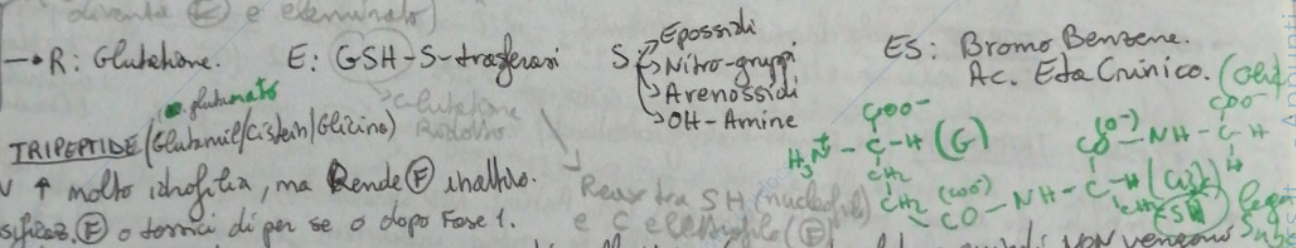 diventa E e eliminato)
→ R: Glutatione. E: GSH-S-trasferasi S Epossidi
Nitro-gruppi
Arenossidi
OH-Amine
ES: Bromo Benzene.
Ac. Etacrinico.
glutamato
Glutatione
Ridotto
TRIPEPTIDE (Glutamil/Cistein/Glicina)
↑ molto idrofilia, ma Rende F inattivo.
F o tossici di per se o dopo Fase 1.
Reaz tra SH (nucleofilo)
e C elettrofilo (F)
COO⁻
H₃N⁺ - C - H (G)
CH₂
CH₂ (COO⁻)
CO - NH - C - H (Cis)
CH₂ SH
(O⁻) NH - C - H
COO⁻
H
NON vengono
Appunti